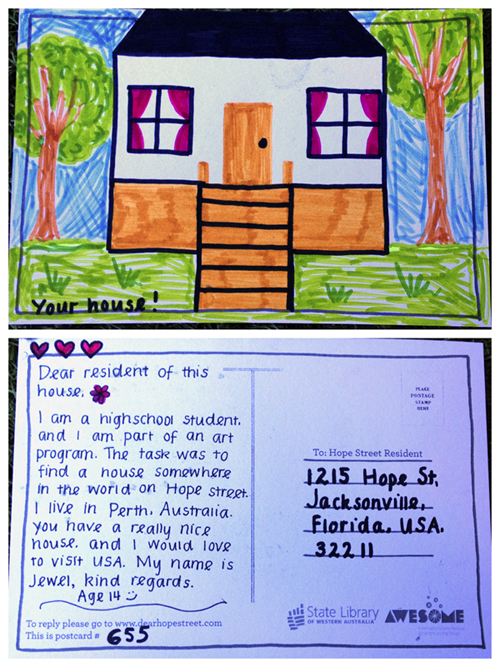 Your house!
Dear resident of this
house,
I am a highschool student,
and I am part of an art
program. The task was to
find a house somewhere
in the world on Hope street.
I live in Perth, Australia.
you have a really nice
house. and I would love
to visit USA. My name is
Jewel, kind regards.
Age 14
To reply please go to www.dearhopestreet.com
This is postcard # 655
PLACE
POSTAGE
STAMP
HERE
To: Hope Street Resident
1215 Hope St,
Jacksonville,
Florida, USA.
32211
State Library
OF WESTERN AUSTRALIA
AWESOME